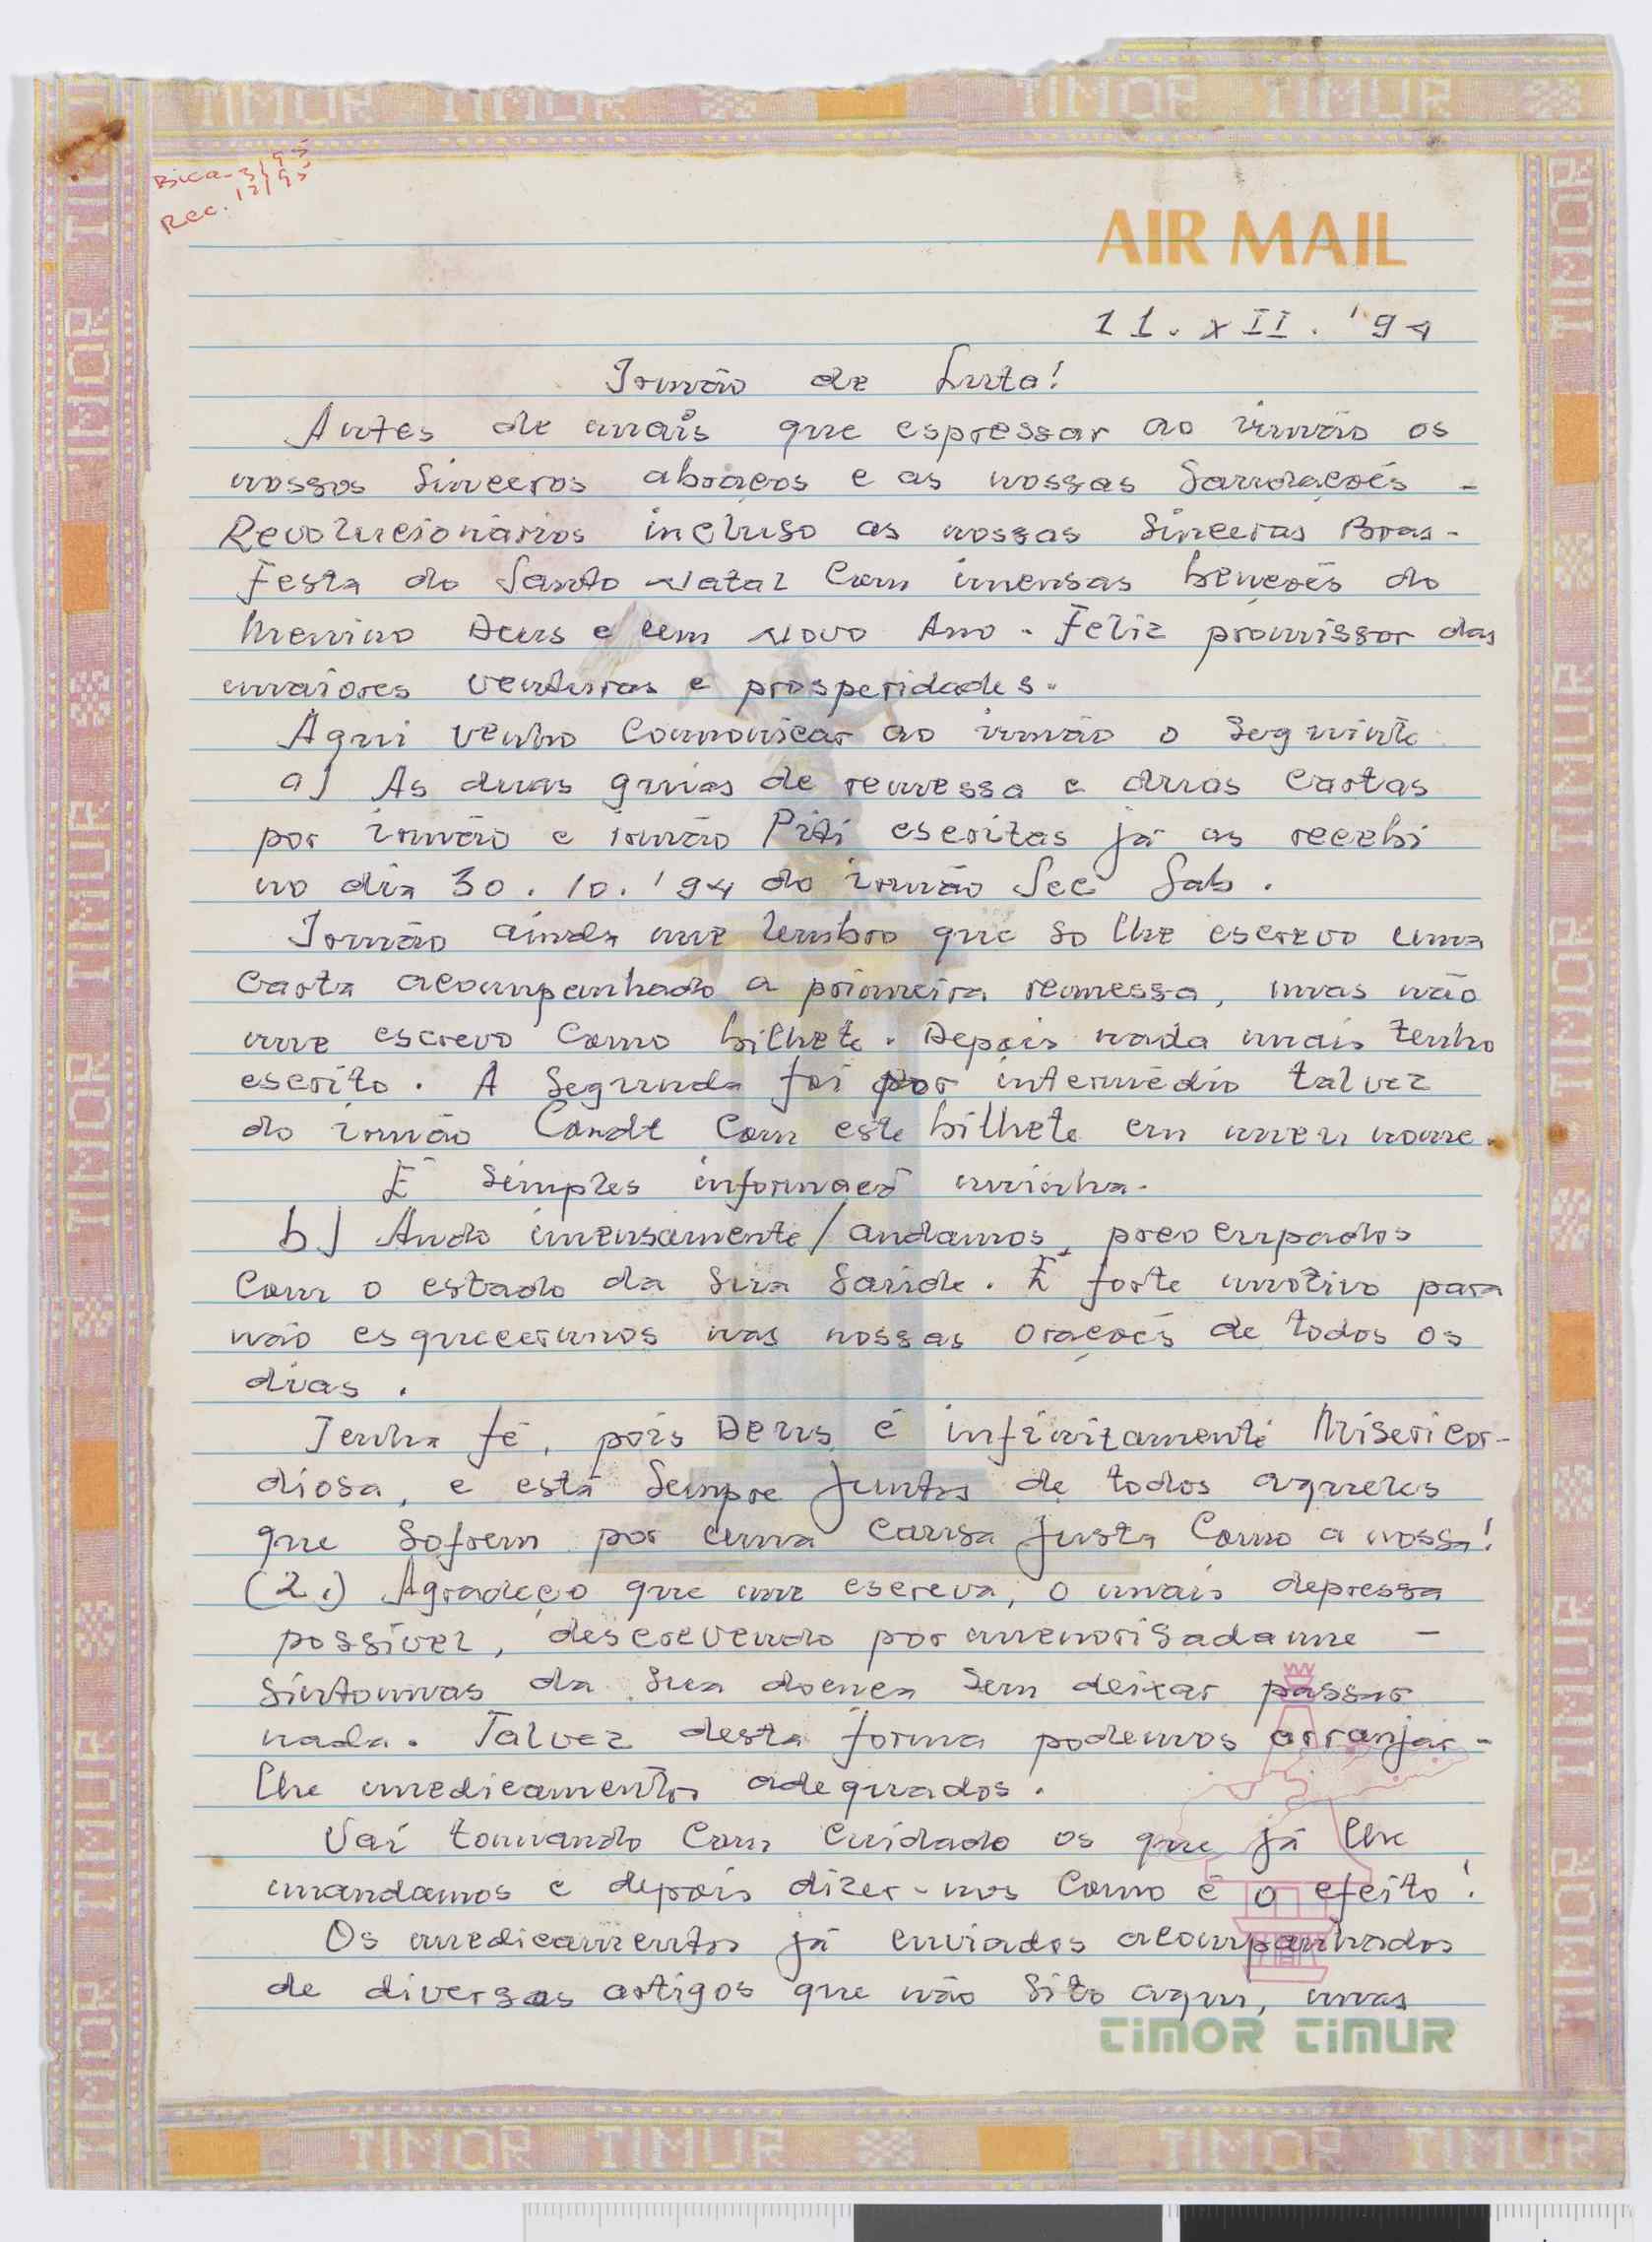 TIMOR TIMUR TIMOR TIMUR
Bica - 3/95
Rec. 12/95
AIR MAIL
11. XII. '94
Irmão de Luta!
Antes de mais que espressar ao irmão os
nossos sinceros abraços e as nossas Saudações -
Revolucionários incluso as nossas sinceras Boas-
Festa do Santo Natal com imensas bençoẽs do
Menino Deus e um Novo Ano - Feliz promissor das
maiores venturas e prosperidades.
Aqui venho comonicar ao irmão o seguinte
a) As duas guias de remessa e duas cartas
por irmão e irmão Piti escritas já as recebi
no dia 30. 10. '94 do irmão Sec Sab.
Irmão ainda me lembro que so lhe escrevo uma
carta acompanhado a primeira remessa, mas não
me escrevo como bilhete. Depois nada mais tenho
escrito. A segunda foi por intermédio talvez
do irmão Condt com este bilhete em meu nome.
É simples informacõ minha.
b) Ando imensamente/andamos preocupados
com o estado da sua saúde. É forte motivo para
não esquecermos nas nossas oraçoẽs de todos os
dias.
Tenha fé, pois Deus é infinitamente Misericor-
diosa, e está sempre juntos de todos aqueles
que sofrem por uma causa justa como a nossa!
(2.) Agradeço que me escreva, o mais depressa
possivel, descrevendo pormenorisadame -
sintomas da sua doença sem deixar passar
nada. Talvez desta forma podemos arranjar-
lhe medicamentos adequados.
Vai tomando com cuidado os que já lhe
mandamos e depois dizer-nos como é o efeito!
Os medicamentos já enviados acompanhados
de diversos artigos que não sito aqui, mas
TIMOR TIMUR
TIMOR TIMUR TIMOR TIMUR